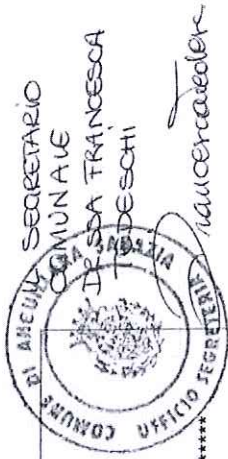 SEGRETARIO
COMUNALE
DR.SSA FRANCESCA
TEDESCHI
COMUNE DI ANGUILLARA SABAZIA
UFFICIO SEGRETERIA
*****